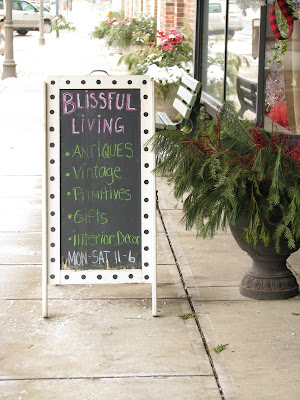 BLissfuL
LiviNG
• ANTiQUES
• Vintage
• Primitives
• Gifts
• Interior Decor
MON-SAT 11-6